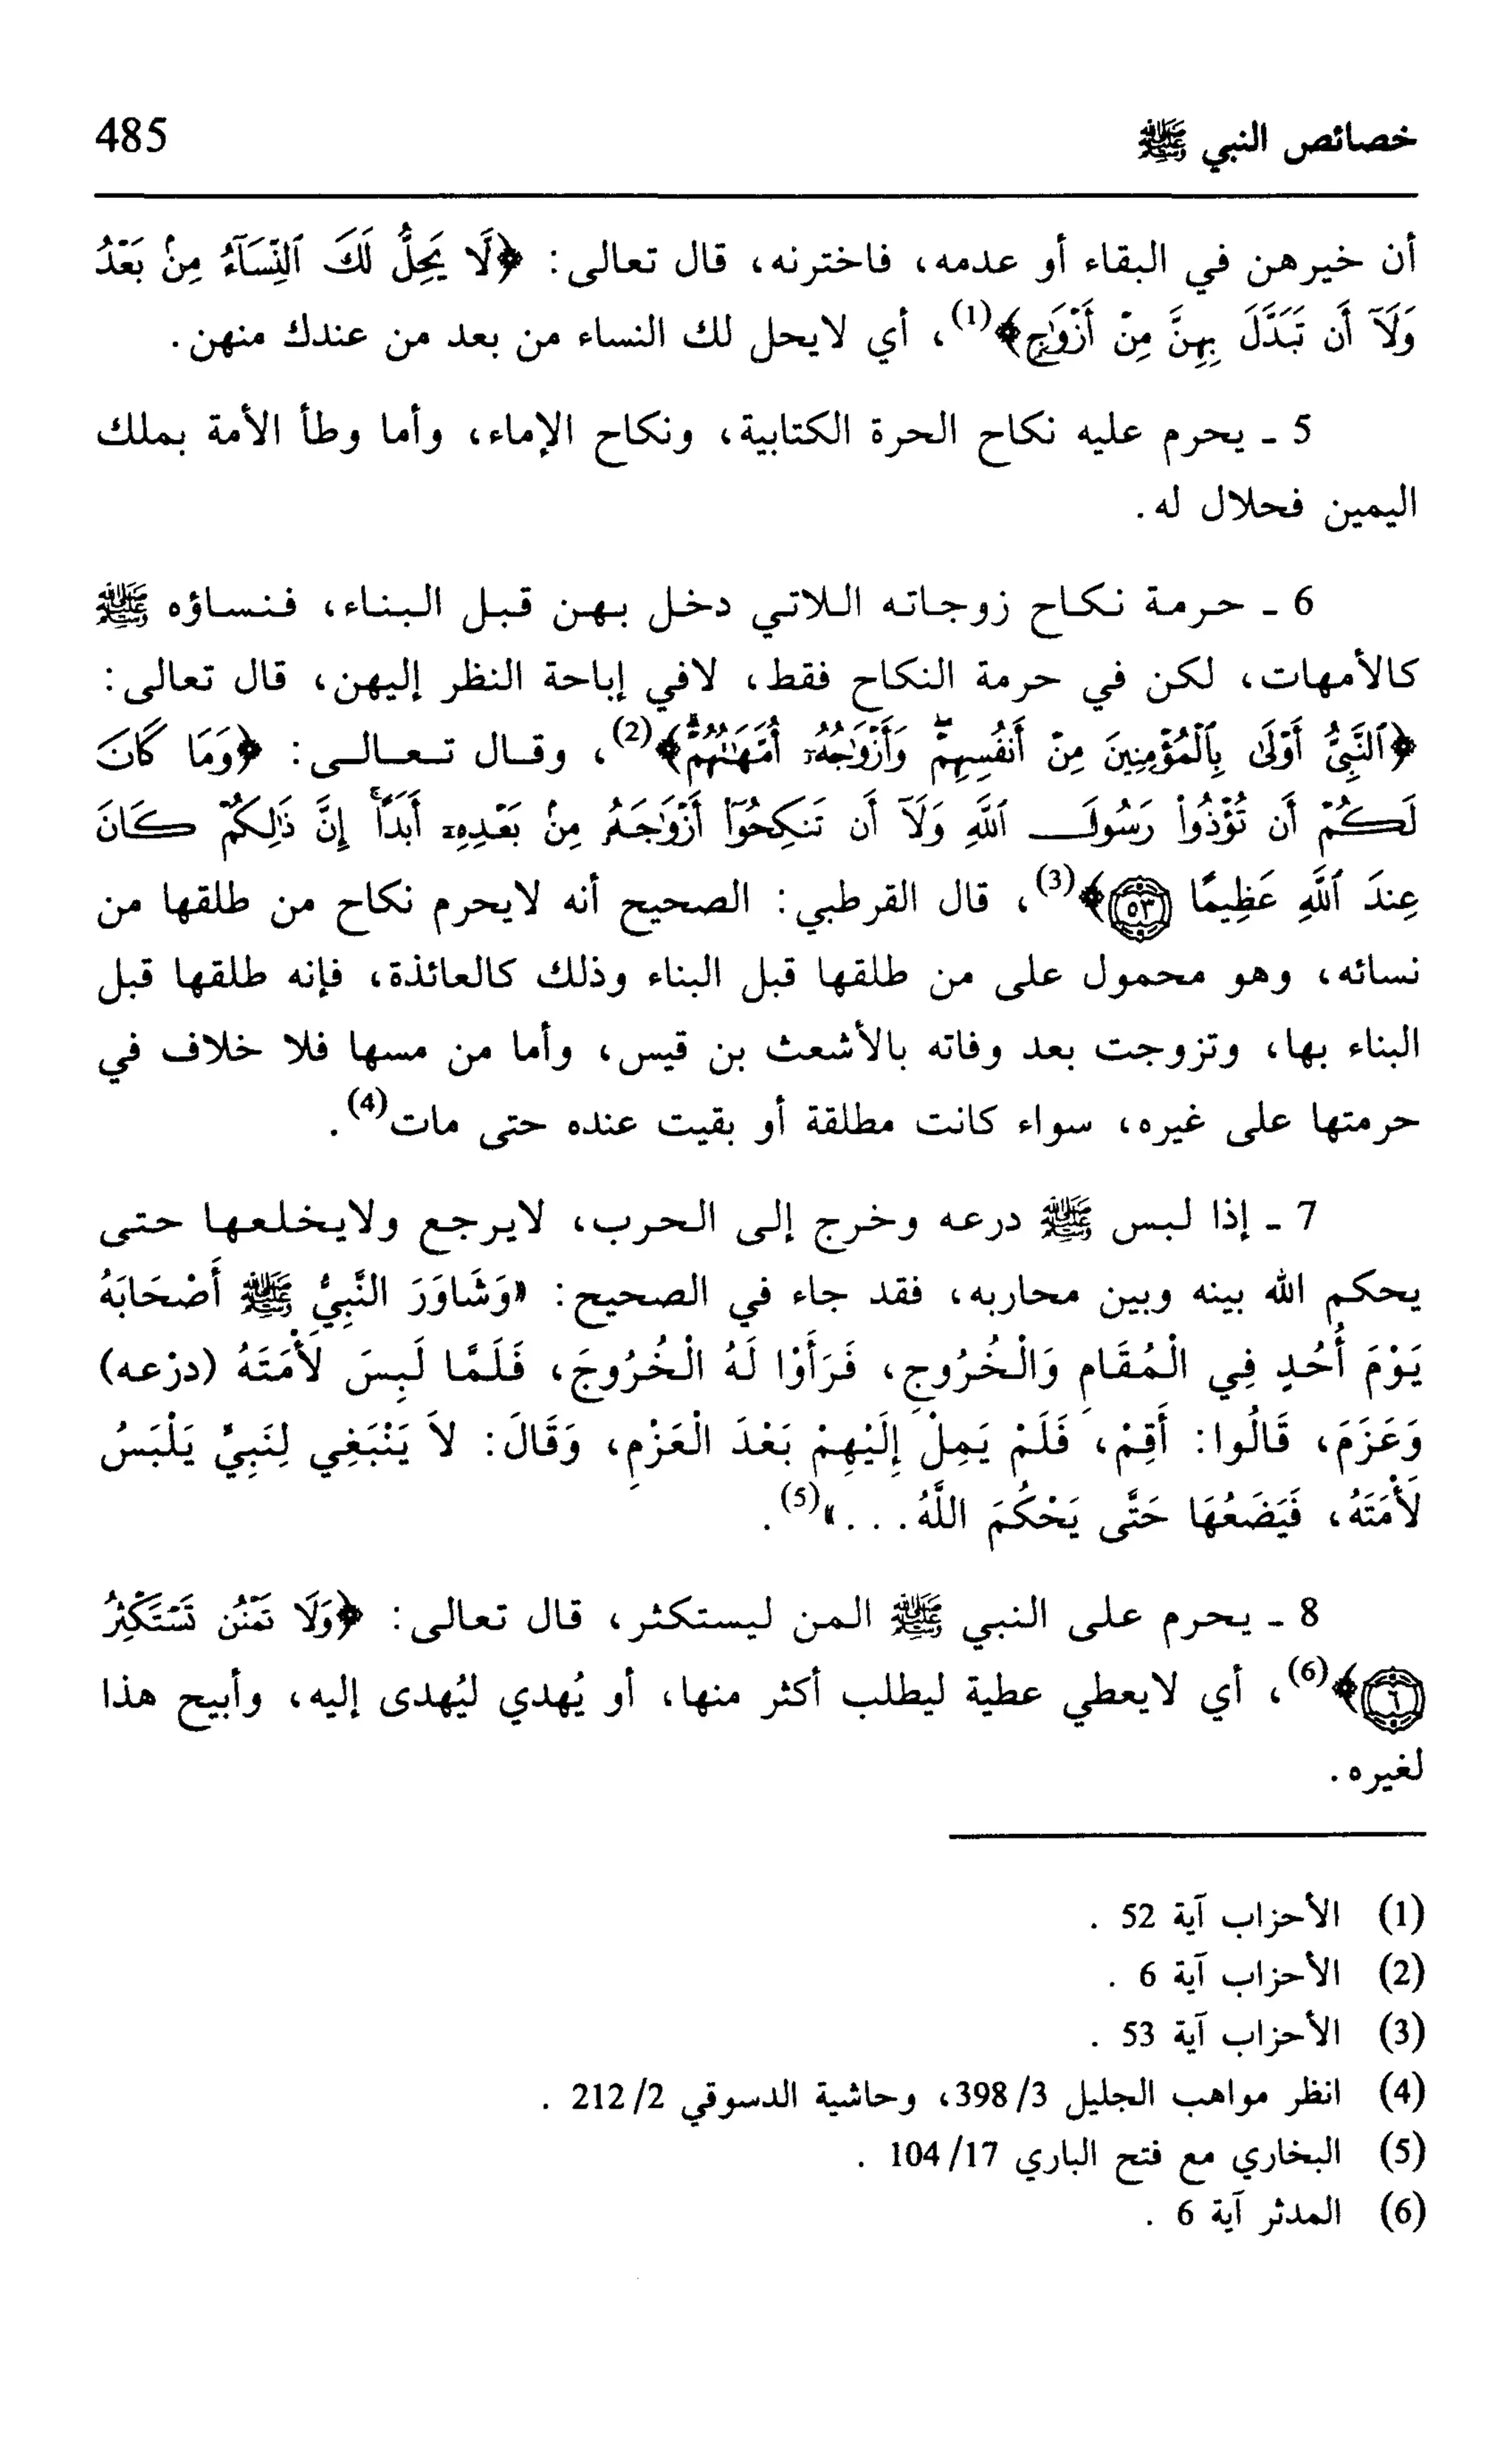 خصائص النبي ﷺ 485
أن خيرهن في البقاء أو عدمه، فاخترنه، قال تعالى: ﴿لَّا يَحِلُّ لَكَ ٱلنِّسَآءُ مِنۢ بَعْدُ
وَلَآ أَن تَبَدَّلَ بِهِنَّ مِنْ أَزْوَٰجٍ﴾(1)، أي لايحل لك النساء من بعد من عندك منهن.
5 ـ يحرم عليه نكاح الحرة الكتابية، ونكاح الإماء، وأما وطأ الأمة بملك
اليمين فحلال له.
6 ـ حرمة نكاح زوجاته اللاتي دخل بهن قبل البناء، فنساؤه ﷺ
كالأمهات، لكن في حرمة النكاح فقط، لافي إباحة النظر إليهن، قال تعالى:
﴿ٱلنَّبِىُّ أَوْلَىٰ بِٱلْمُؤْمِنِينَ مِنْ أَنفُسِهِمْ ۖ وَأَزْوَٰجُهُۥٓ أُمَّهَٰتُهُمْ ۗ﴾(2)، وقال تعالى: ﴿وَمَا كَانَ
لَكُمْ أَن تُؤْذُوا۟ رَسُولَ ٱللَّهِ وَلَآ أَن تَنكِحُوٓا۟ أَزْوَٰجَهُۥ مِنۢ بَعْدِهِۦٓ أَبَدًا ۚ إِنَّ ذَٰلِكُمْ كَانَ
عِندَ ٱللَّهِ عَظِيمًا ٥٣﴾(3)، قال القرطبي: الصحيح أنه لايحرم نكاح من طلقها من
نسائه، وهو محمول على من طلقها قبل البناء وذلك كالعائذة، فإنه طلقها قبل
البناء بها، وتزوجت بعد وفاته بالأشعث بن قيس، وأما من مسها فلا خلاف في
حرمتها على غيره، سواء كانت مطلقة أو بقيت عنده حتى مات(4).
7 ـ إذا لبس ﷺ درعه وخرج إلى الحرب، لايرجع ولايخلعها حتى
يحكم الله بينه وبين محاربه، فقد جاء في الصحيح: «وَشَاوَرَ النَّبِيُّ ﷺ أَصْحَابَهُ
يَوْمَ أُحُدٍ فِي الْمُقَامِ وَالْخُرُوجِ، فَرَأَوْا لَهُ الْخُرُوجَ، فَلَمَّا لَبِسَ لأْمَتَهُ (درْعه)
وَعَزَمَ، قَالُوا: أَقِمْ، فَلَمْ يَمِلْ إِلَيْهِمْ بَعْدَ الْعَزْمِ، وَقَالَ: لاَ يَنْبَغِي لِنَبِيٍّ يَلْبَسُ
لأْمَتَهُ، فَيَضَعُهَا حَتَّى يَحْكُمَ اللَّهُ...»(5).
8 ـ يحرم على النبي ﷺ المن ليستكثر، قال تعالى: ﴿وَلَا تَمْنُن تَسْتَكْثِرُ
٦﴾(6)، أي لايعطي عطية ليطلب أكثر منها، أو يُهدي ليُهدى إليه، وأبيح هذا
لغيره.
(1) الأحزاب آية 52 .
(2) الأحزاب آية 6 .
(3) الأحزاب آية 53 .
(4) انظر مواهب الجليل 3/ 398، وحاشية الدسوقي 2/ 212 .
(5) البخاري مع فتح الباري 17/ 104 .
(6) المدثر آية 6 .